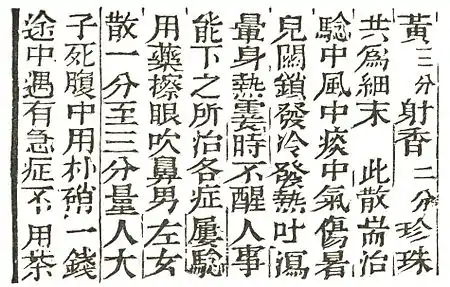 黃三分射香二分珍珠
共爲細末　此散耑治
騐中風中痰中氣傷暑
兒關鎖發冷發熱吐瀉
暈身熱霎時不醒人事
能下之所治各症屢騐
用藥擦眼吹鼻男左女
散一分至三分量人大
子死腹中用朴硝一錢
途中遇有急症不用茶